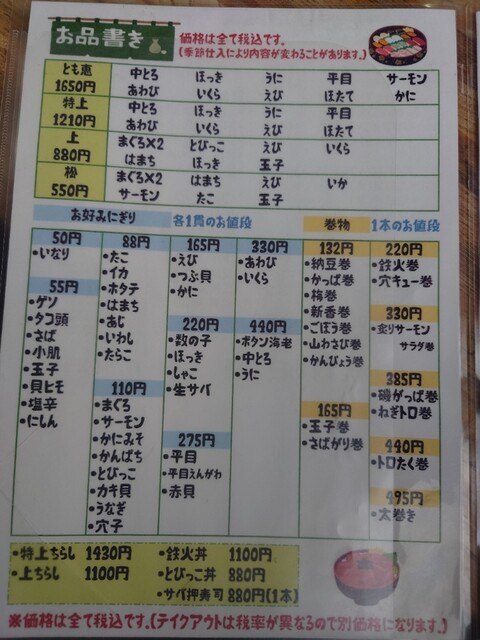 お品書き
価格は全て税込です。
(季節仕入により内容が変わることがあります。)
とも恵 1650円 中とろ ほっき うに 平目 サーモン
あわび いくら えび ほたて かに
特上 1210円 中とろ ほっき うに 平目
あわび いくら えび ほたて
上 880円 まぐろ×2 とびっこ えび いくら
はまち ほっき 玉子
松 550円 まぐろ×2 はまち えび いか
サーモン たこ 玉子
お好みにぎり 各1貫のお値段
50円
・いなり
55円
・ゲソ
・タコ頭
・さば
・小肌
・玉子
・貝ヒモ
・塩辛
・にしん
88円
・たこ
・イカ
・ホタテ
・はまち
・あじ
・いわし
・たらこ
110円
・まぐろ
・サーモン
・かにみそ
・かんぱち
・とびっこ
・カキ貝
・うなぎ
・穴子
165円
・えび
・つぶ貝
・かに
220円
・数の子
・ほっき
・しゃこ
・生サバ
275円
・平目
・平目えんがわ
・赤貝
330円
・あわび
・いくら
440円
・ボタン海老
・中とろ
・うに
巻物 1本のお値段
132円
・納豆巻
・かっぱ巻
・梅巻
・新香巻
・ごぼう巻
・山わさび巻
・かんぴょう巻
165円
・玉子巻
・さばがり巻
220円
・鉄火巻
・穴キュー巻
330円
・炙りサーモン
サラダ巻
385円
・磯がっぱ巻
・ねぎトロ巻
440円
・トロたく巻
495円
・太巻き
・特上ちらし 1430円
・上ちらし 1100円
・鉄火丼 1100円
・とびっこ丼 880円
・サバ押寿司 880円(1本)
※価格は全て税込です。(テイクアウトは税率が異なるので別価格になります。)